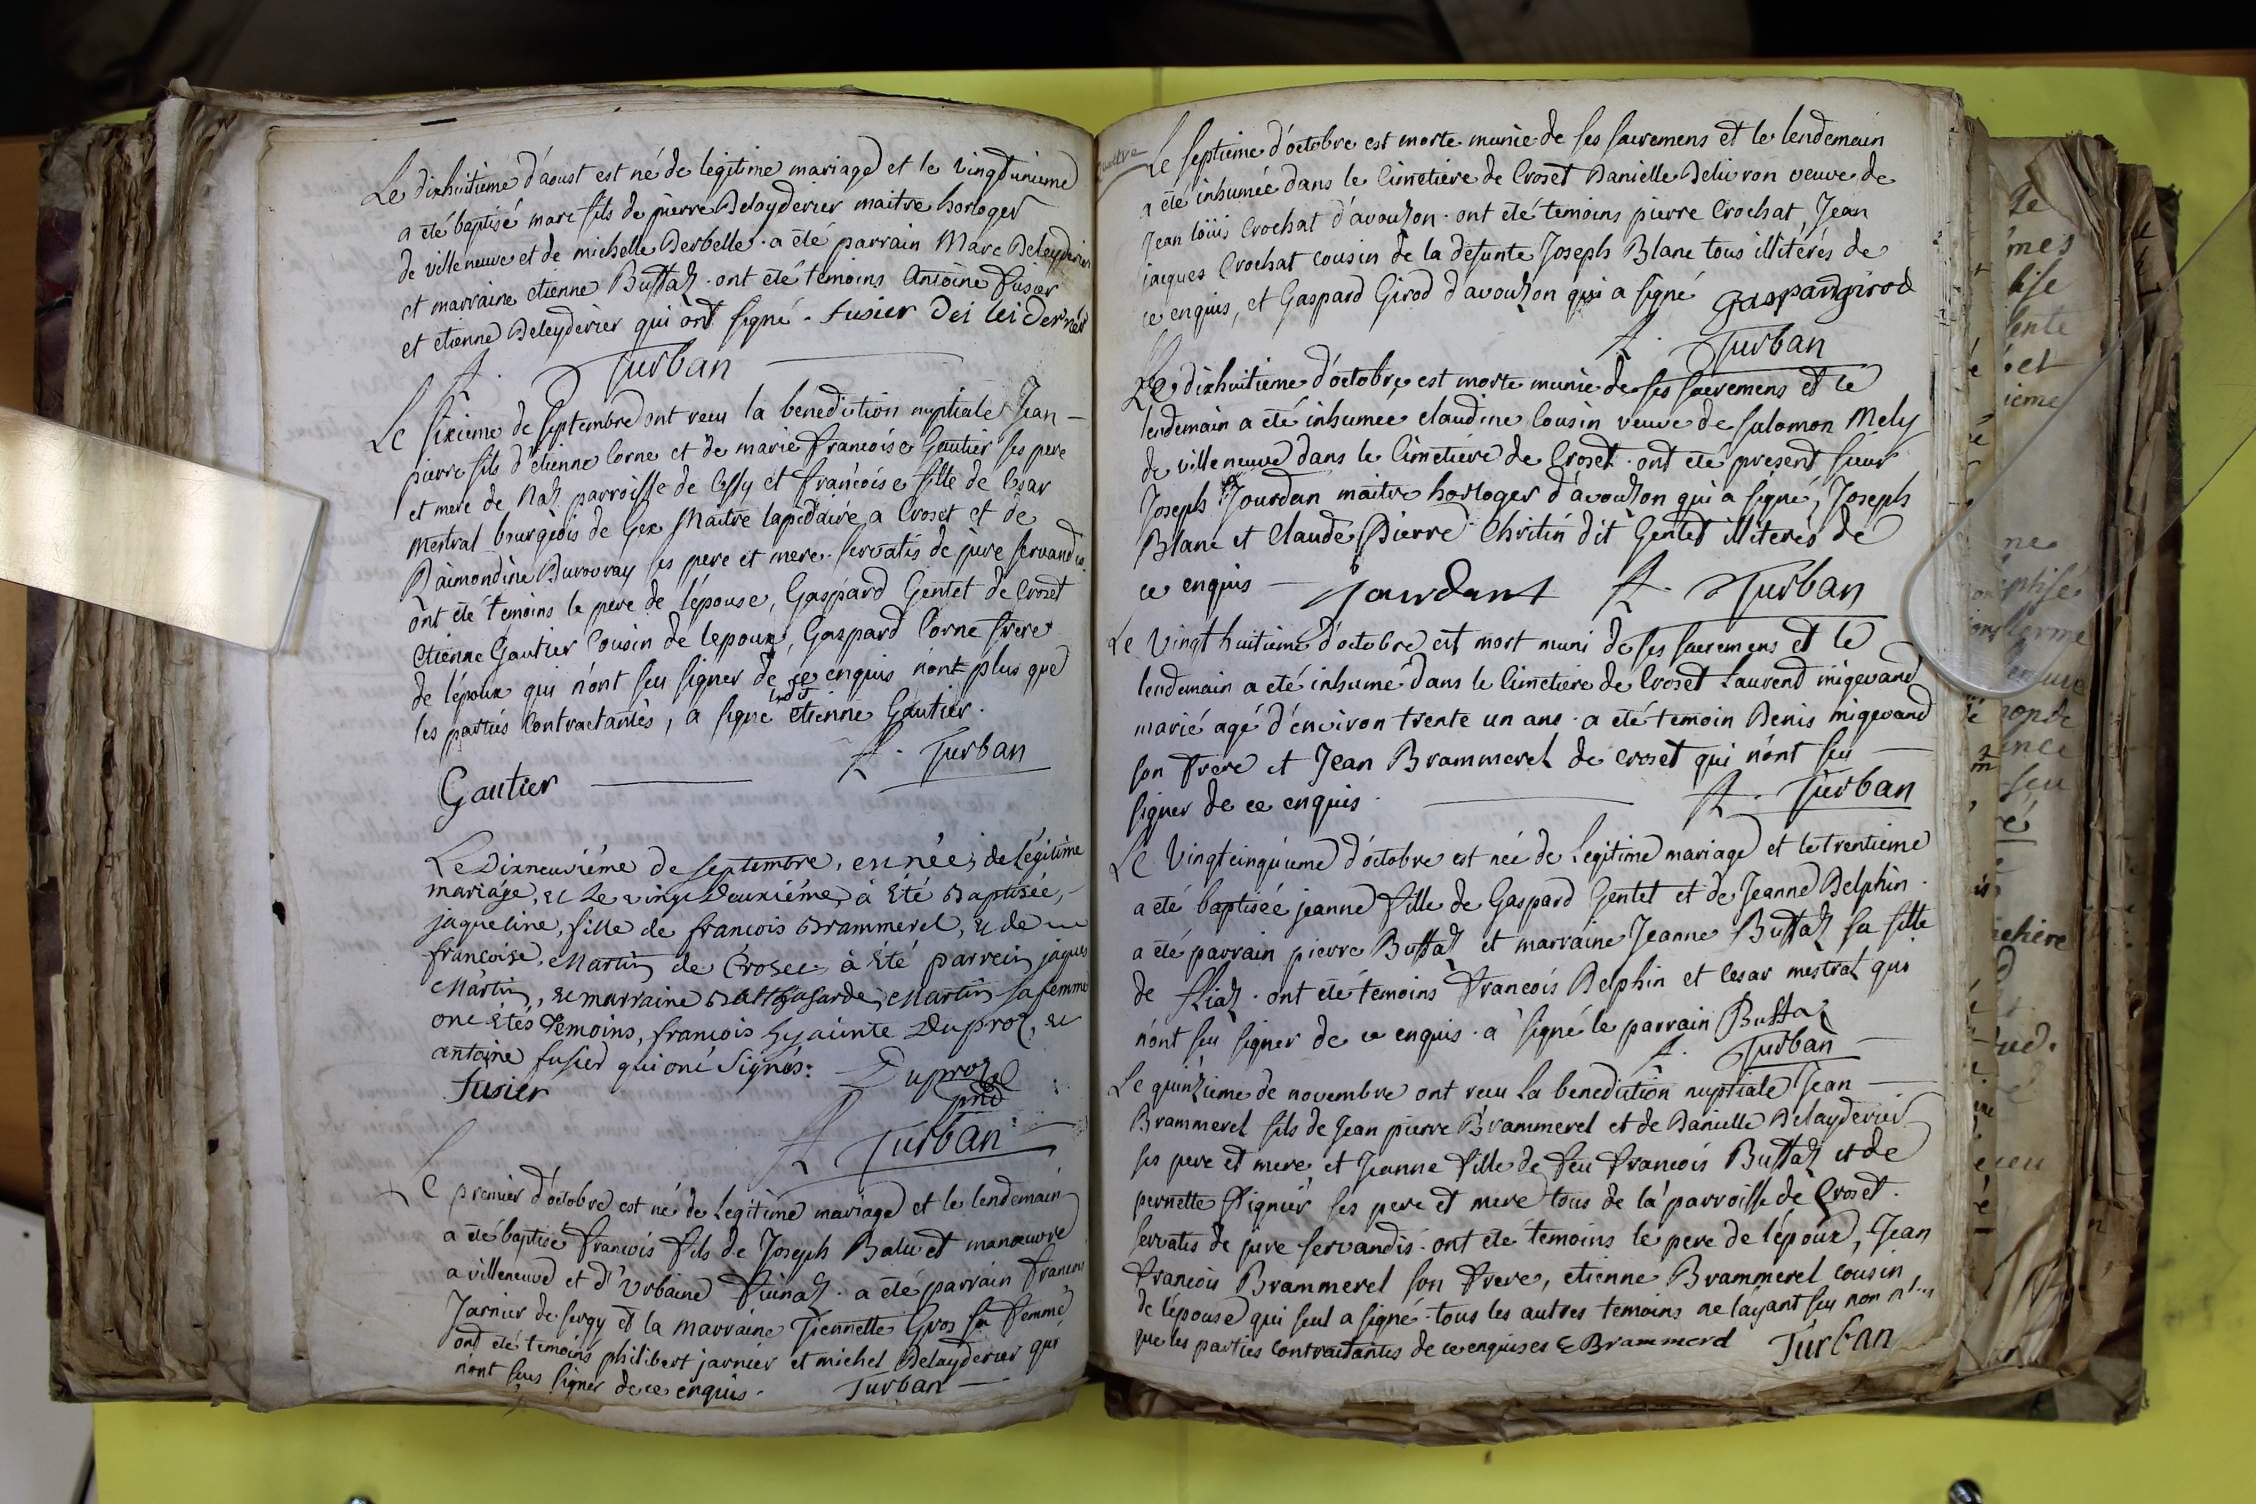 Le dixhuitieme d'aoust est né de legitime mariage et le vingtunieme
a été baptisé marc fils de pierre Delayderier maitre horloger
de villeneuve et de michelle Derbelle. a été parrain Marc Deleyderier
et marraine etienne Buffaz. ont été temoins Antoine fusier
et etienne Deleyderier qui ont signé. fusier Dei lei dernier
Turban
Le sixieme de septembre ont recu la benediction nuptiale Jean
pierre fils d'etienne Corne et de marie francoise Gautier ses pere
et mere de Naz parroisse de Cessy et francoise fille de Cesar
Mestral bourgeois de Gex Maitre lapidaire a Croset et de
Raimondine Durouvray ses pere et mere. servatis de jure servandis.
ont été temoins le pere de l'épouse, Gaspard Gentet de Croset
etienne Gautier Cousin de lepoux, Gaspard Corne frere
de lépoux qui n'ont seu signer de ce enquis nont plus que
les parties Contractantes, a signé ledit etienne Gautier.
Turban
Gautier
Le Dixneuviéme de septembre, est née, de légitime
mariage, et Le vingt Deuxiéme, à Eté Baptisée,
jaqueline, fille de francois Brammerel, et de
francoise, Martin de Croset à Eté parrein jaques
Martin, et marraine Balthasarde Martin sa femme
ont Etés Temoins, francois hyacinte Duproz, et
antoine fusier qui ont Signés: Duproz
fusier
Turban
Le premier d'octobre est né de legitime mariage et le lendemain
a été baptisé francois fils de Joseph Balivet manœuvre
a villeneuve et d'Urbaine fuinaz. a été parrain francois
Jarnier de sergy et la marraine Tiennette Gros sa femme
ont été temoins philibert jarnier et michel Delayderier qui
n'ont seus signer de ce enquis. Turban
Le septieme d'octobre est morte munie de ses sacremens et le lendemain
a été inhumée dans le Cimetiere de Croset Danielle Delivron veuve de
Jean loüis Crochat d'avouzon. ont été temoins pierre Crochat, Jean
jacques Crochat cousin de la defunte Joseph Blanc tous illiterés de
ce enquis, et Gaspard Girod d'avouzon qui a signé Gaspard girod
Turban
Le dixhuitieme d'octobre est morte munie de ses sacremens et le
lendemain a été inhumée claudine Cousin veuve de salomon Mely
de villeneuve dans le Cimetiére de Croset. ont été present sieur
Joseph Jourdan maitre horloger d'avouzon qui a signé, Joseph
Blanc et Claude Pierre Chritin dit Gentet illiterés de
ce enquis Jourdant Turban
Le vingt huitieme d'octobre est mort muni de ses sacremens et le
lendemain a été inhumé dans le Cimetiere de Croset Laurend migevand
marié agé d'environ trente un ans. a été temoin Denis migevand
son frere et Jean Brammerel de croset qui n'ont seu
signer de ce enquis. Turban
Le Vingtcinquieme d'octobre est née de Legitime mariage et le trentieme
a été baptisée jeanne fille de Gaspard Gentet et de Jeanne Delphin.
a été parrain pierre Buffaz et marraine Jeanne Buffaz sa fille
de Liaz. ont été temoins francois Delphin et Cesar mestral qui
n'ont seu signer de ce enquis. a signé le parrain Buffaz
Turban
Le quinzieme de novembre ont recu la benediction nuptiale Jean
Brammerel fils de Jean pierre Brammerel et de Danielle Delayderier
ses pere et mere et Jeanne fille de feu francois Buffaz et de
pernette Pignier ses pere et mere tous de la parroisse de Croset.
servatis de jure servandis. ont été temoins le pere de l'époux, Jean
francois Brammerel son frere, etienne Brammerel cousin
de l'épouse qui seul a signé. tous les autres temoins ne layant seu non plus
que les parties Contractantes de ce enquises E Brammerel Turban